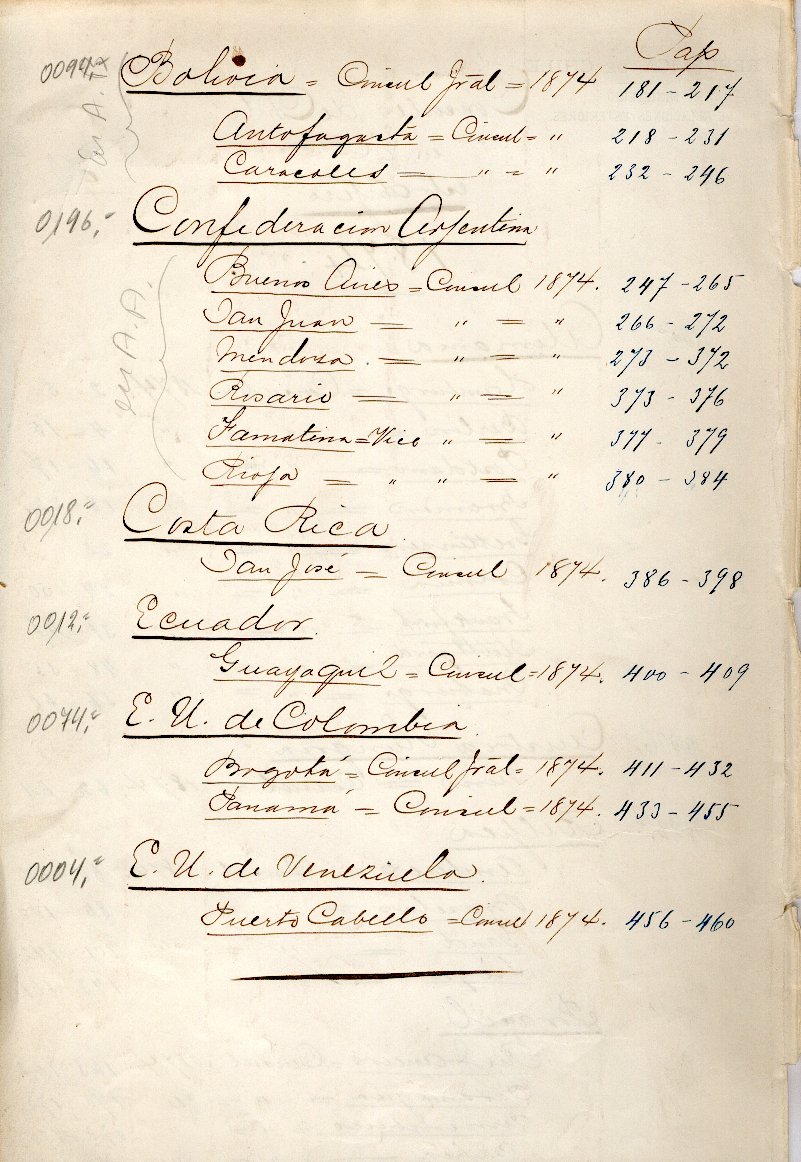 Pap
0094,= Bolivia = Cónsul Jrâl = 1874 181 - 217
Antofagasta = Cónsul = " 218 - 231
Caracoles = " = " 232 - 246
0196,= Confederacion Arjentina
Buenos Aires = Consul 1874. 247 - 265
San Juan = " = " 266 - 272
Mendosa . = " = " 273 - 372
en A.A.
Rosario = " = " 373 - 376
Famatina = Vice " = " 377 - 379
Rioja = " " = " 380 - 384
0018,= Costa Rica.
San José = Cónsul 1874. 386 - 398
0012,= Ecuador.
Guayaquil = Cónsul = 1874. 400 - 409
0074,= E. U. de Colombia.
Bogotá = Cónsul Jrâl = 1874. 411 - 432
Panamá = Cónsul = 1874. 433 - 455
0004,= E. U. de Venezuela.
Puerto Cabello = Consul 1874. 456 - 460